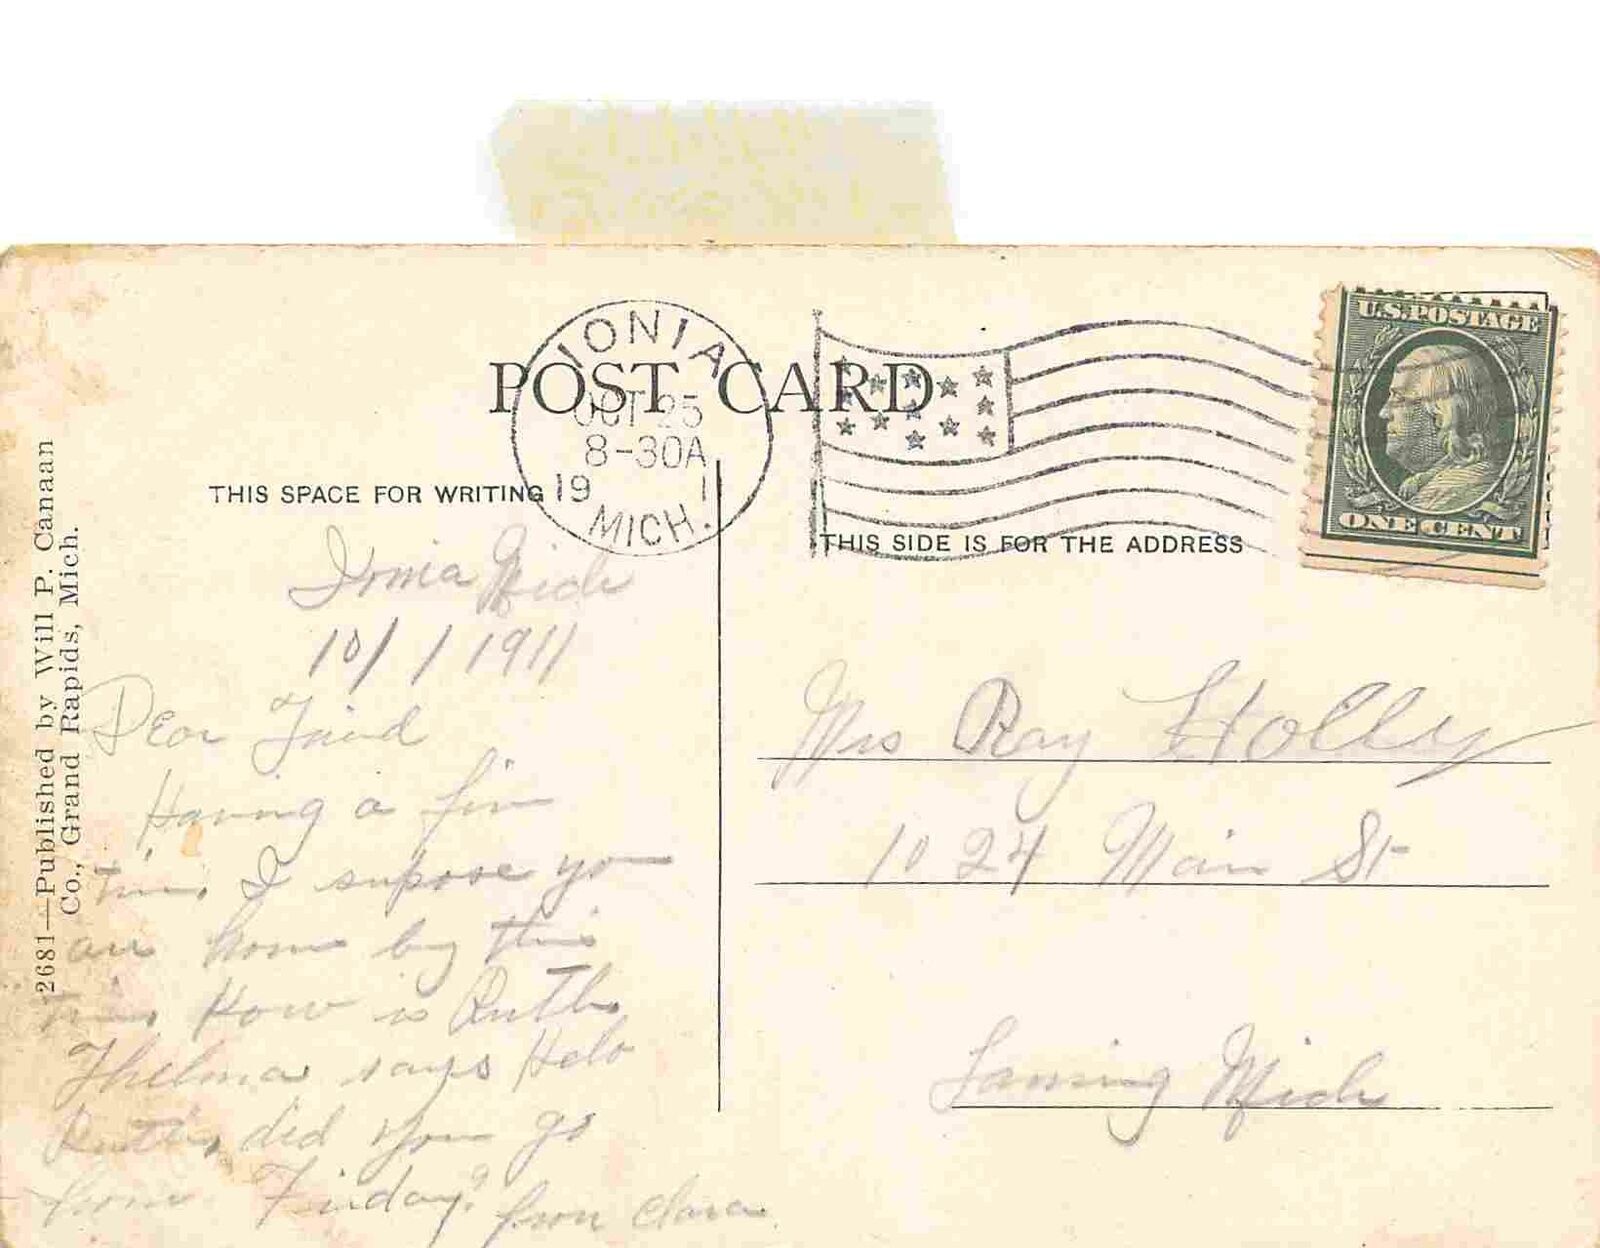 U.S. POSTAGE
ONE CENT
IONIA
OCT 25
8-30A
19 1
MICH.
POST CARD
THIS SPACE FOR WRITING
THIS SIDE IS FOR THE ADDRESS
2681—Published by Will P. Canaan
Co., Grand Rapids, Mich.
Ionia Mich
10/ / 1911
Dear Friend
Having a fine
time, I supose you
are home by this
time, How is Ruth,
Thelma says Helo
Ruth, did you go
home Friday? from Clara
Mrs Ray Holly
1024 Main St
Lansing Mich